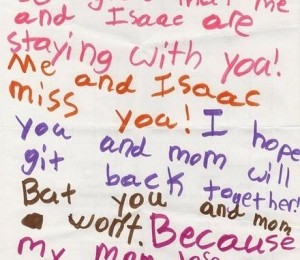 that me
and Isaac are
staying with you!
Me and Isaac
miss you! I hope
you and mom will
git back together!
Bat you and mom
wont. Because
my mom